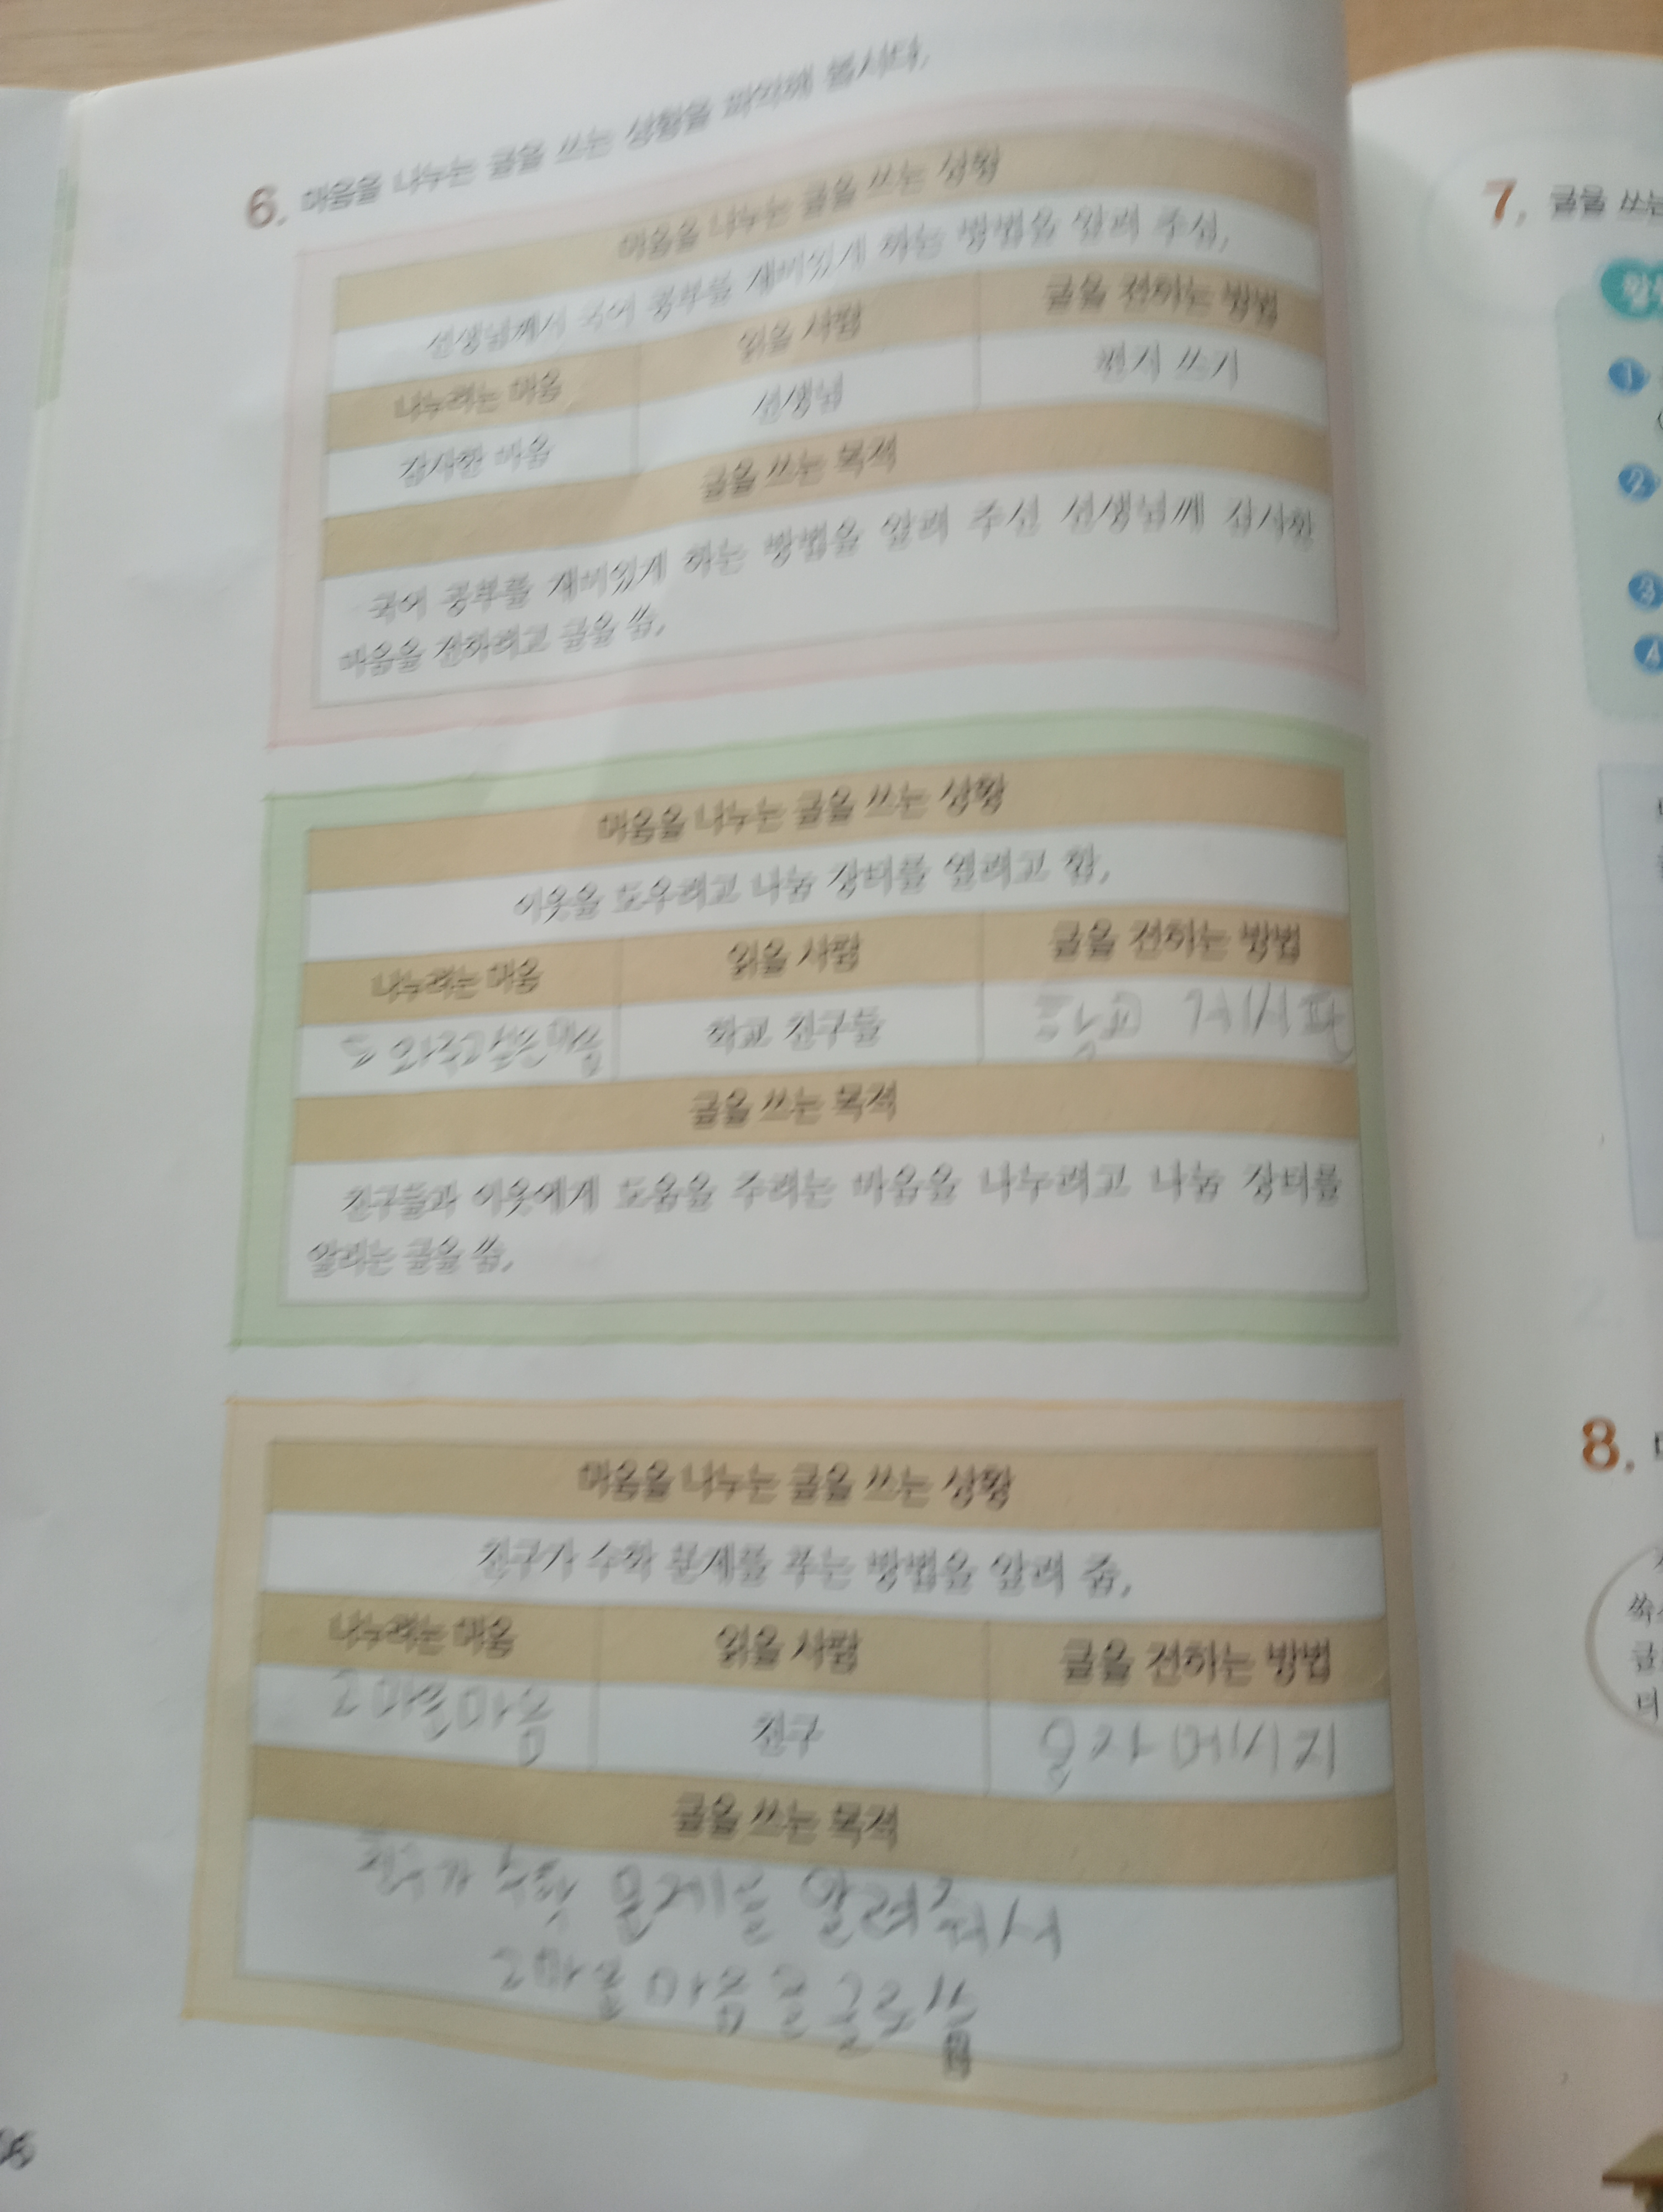 6. 마음을 나누는 글을 쓰는 상황을 파악해 봅시다.
마음을 나누는 글을 쓰는 상황
선생님께서 국어 공부를 재미있게 하는 방법을 알려 주심.
나누려는 마음 읽을 사람 글을 전하는 방법
감사한 마음 선생님 편지 쓰기
글을 쓰는 목적
국어 공부를 재미있게 하는 방법을 알려 주신 선생님께 감사한
마음을 전하려고 글을 씀.
마음을 나누는 글을 쓰는 상황
이웃을 도우려고 나눔 장터를 열려고 함.
나누려는 마음 읽을 사람 글을 전하는 방법
학교 친구들 게시판
글을 쓰는 목적
친구들과 이웃에게 도움을 주려는 마음을 나누려고 나눔 장터를
알리는 글을 씀.
마음을 나누는 글을 쓰는 상황
친구가 수학 문제를 푸는 방법을 알려 줌.
나누려는 마음 읽을 사람 글을 전하는 방법
고마운마음 친구 문자메시지
글을 쓰는 목적
친구가 수학 문제를 알려줘서
고마운 마음을 글로씀
7. 글을 쓰는
1
2
3
4
8.